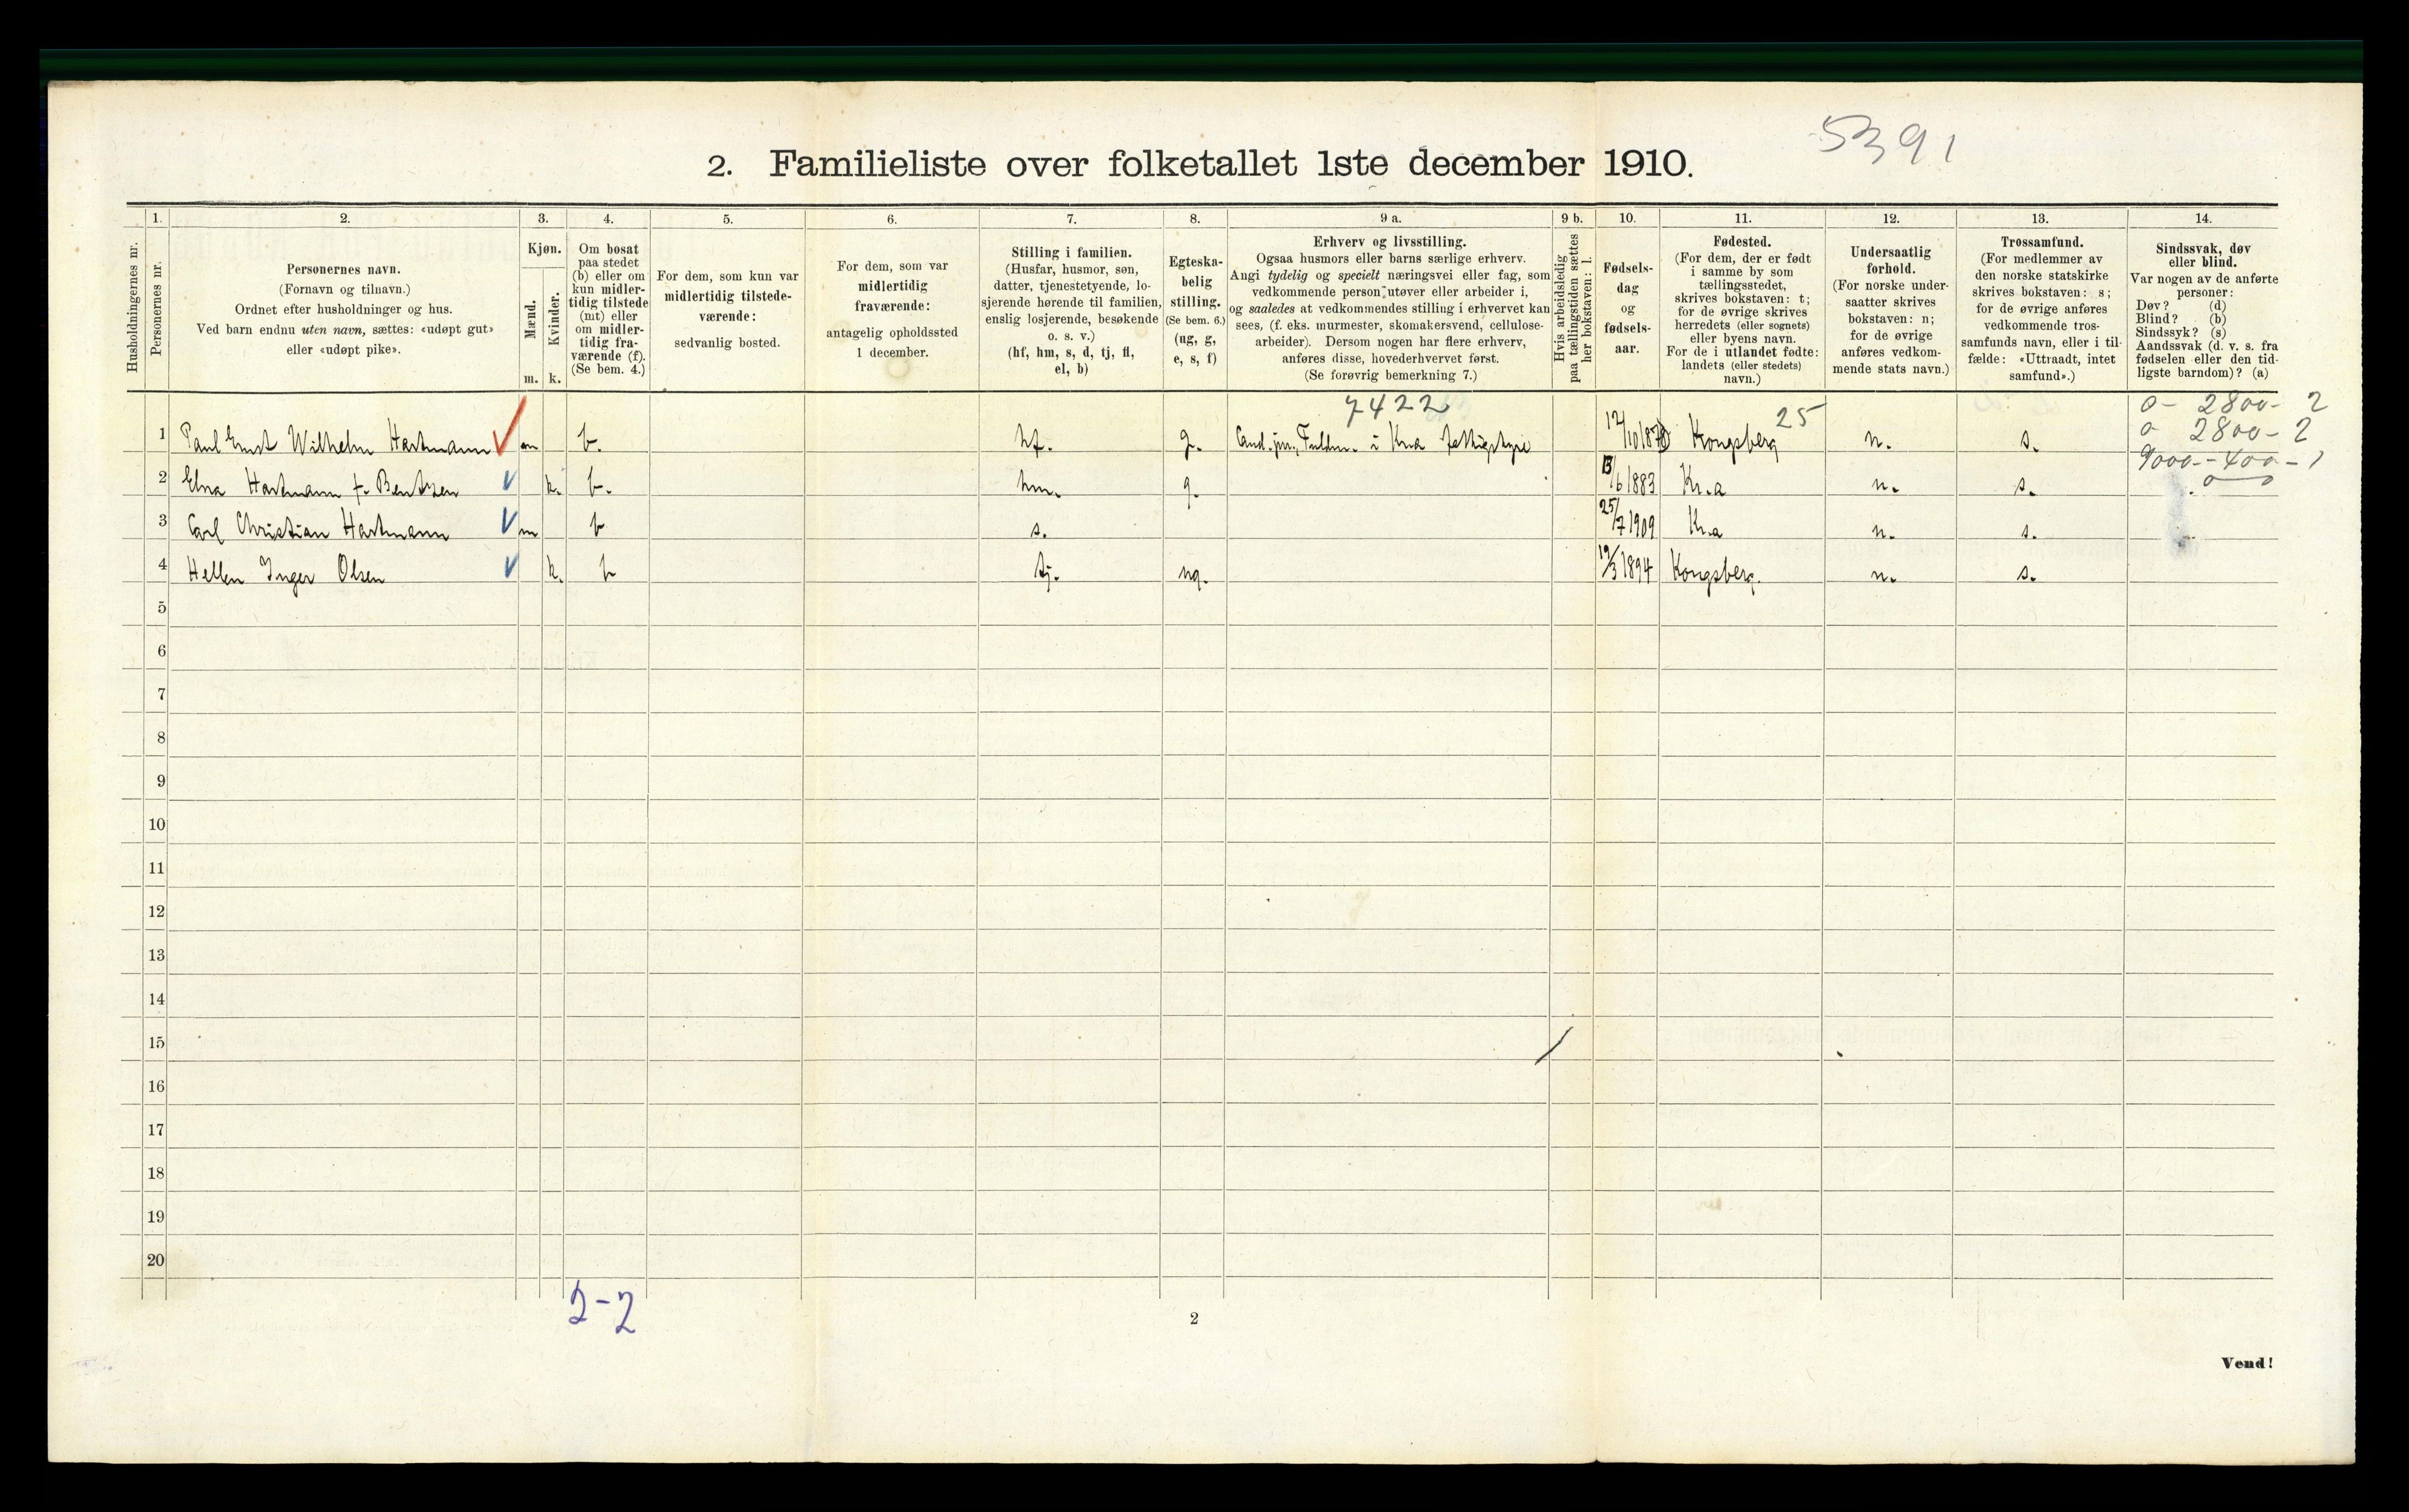 5391
2. Familieliste over folketallet 1ste december 1910.
1. 2. 3. 4. 5. 6. 7. 8. 9 a. 9 b. 10. 11. 12. 13. 14.
Husholdningernes nr.
Personernes nr.
Personernes navn.
(Fornavn og tilnavn.)
Ordnet efter husholdninger og hus.
Ved barn endnu uten navn, sættes: «udøpt gut»
eller «udøpt pike».
Kjøn.
Mænd.
Kvinder.
m. k.
Om bosat
paa stedet
(b) eller om
kun midler-
tidig tilstede
(mt) eller
om midler-
tidig fra-
værende (f).
(Se bem. 4.)
For dem, som kun var
midlertidig tilstede-
værende:
sedvanlig bosted.
For dem, som var
midlertidig
fraværende:
antagelig opholdssted
1 december.
Stilling i familien.
(Husfar, husmor, søn,
datter, tjenestetyende, lo-
sjerende hørende til familien,
enslig losjerende, besøkende
o. s. v.)
(hf, hm, s, d, tj, fl,
el, b)
Egteska-
belig
stilling.
(Se bem. 6.)
(ug, g,
e, s, f)
Erhverv og livsstilling.
Ogsaa husmors eller barns særlige erhverv.
Angi tydelig og specielt næringsvei eller fag, som
vedkommende person utøver eller arbeider i,
og saaledes at vedkommendes stilling i erhvervet kan
sees, (f. eks. murmester, skomakersvend, cellulose-
arbeider). Dersom nogen har flere erhverv,
anføres disse, hovederhvervet først.
(Se forøvrig bemerkning 7.)
Hvis arbeidsledig
paa tællingstiden sættes
her bokstaven: l.
Fødsels-
dag
og
fødsels-
aar.
Fødested.
(For dem, der er født
i samme by som
tællingsstedet,
skrives bokstaven: t;
for de øvrige skrives
herredets (eller sognets)
eller byens navn.
For de i utlandet fødte:
landets (eller stedets)
navn.)
Undersaatlig
forhold.
(For norske under-
saatter skrives
bokstaven: n;
for de øvrige
anføres vedkom-
mende stats navn.)
Trossamfund.
(For medlemmer av
den norske statskirke
skrives bokstaven: s;
for de øvrige anføres
vedkommende tros-
samfunds navn, eller i til-
fælde: «Uttraadt, intet
samfund».)
Sindssvak, døv
eller blind.
Var nogen av de anførte
personer:
Døv? (d)
Blind? (b)
Sindssyk? (s)
Aandssvak (d. v. s. fra
fødselen eller den tid-
ligste barndom)? (a)
7422 25 0- 2800- 2
1 Paul Ernst Wilhelm Hartmann m b. hf. g. Cand. jur., Fuldm. i Kra fattigstyre 12/10 1878 Kongsberg n. s. 0 2800- 2
9000-- 400- 1
2 Elna Hartmann f. Bentzen k. b. hm. g. 13/6 1883 Kr.a n. s. 0
3 Carl Christian Hartmann m b s. 25/7 1909 Kr.a n. s.
4 Hellen Inger Olsen k. b tj. ug. 19/3 1894 Kongsberg. n. s.
5
6
7
8
9
10
11
12
13
14
15
16
17
18
19
20
2-2
2
Vend!